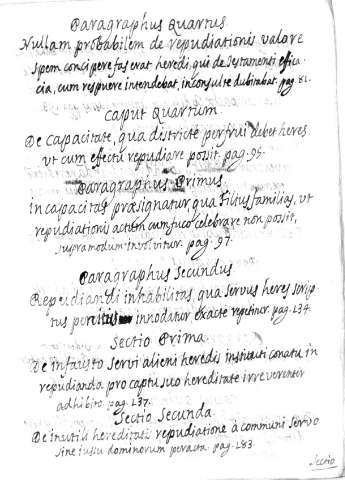 Paragraphus Quartus.
Nullam probabilem de repudiationis valore
spem concipere fas erat heredi, qui de Testamenti effica-
cia, cum respuere intendebat, inconsulte dubitabat. pag. 81.
Caput Quartum.
De capacitate, qua districtè perfrui debet heres,
ut cum effectu repudiare possit. pag. 95.
Paragraphus Primus.
Incapacitas præsignatur, qua Filiusfamilias, ut
repudiationis actum cum fuco celebrare non possit,
supramodum involvitur. pag. 97.
Paragraphus Secundus.
Repudiandi inhabilitas, qua servus heres scrip-
tus innodatur exacte repetitur. pag. 134.
Sectio Prima.
De infausto servi alieni heredis instituti conatu, in
repudianda pro captu suo hereditate irreverenter
adhibito. pag. 137.
Sectio Secunda.
De inutili hereditatis repudiatione à communi servo
sine iussu dominorum peracta. pag. 183.
Sectio